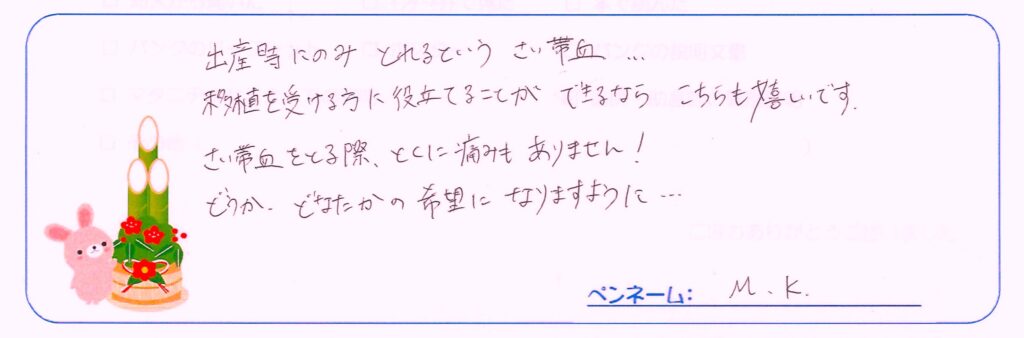 出産時にのみ とれるという さい帯血…
移植を受ける方に役立てることが できるなら こちらも嬉しいです.
さい帯血をとる際、とくに痛みも ありません!
どうか. どなたかの希望に なりますように…
ペンネーム: M.K.